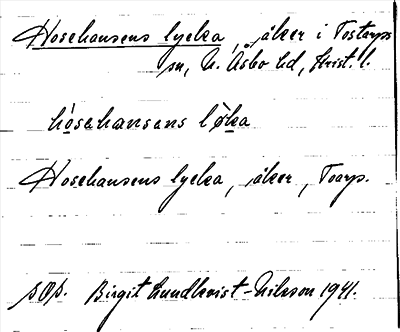 Hosehansens lycka, åker i Tostarps
sn, N. Åsbo hd, Krist. l.
hòsehansens lø̀ka
Hosehansens lycka, åker, Toarp.
sOp. Birgit Lundkvist-Nilsson 1941.